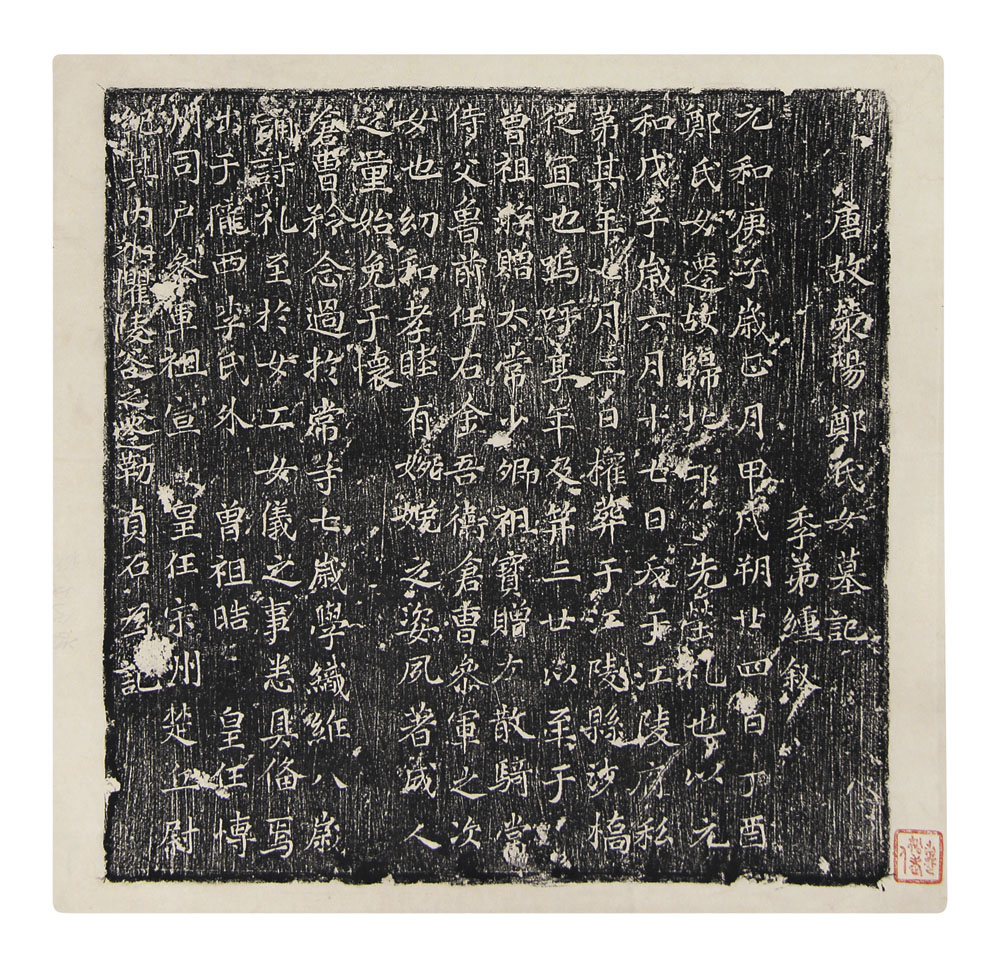 唐故滎陽鄭氏女墓記
季弟叙
元和庚子歲正月甲戌朔廿四日丁酉
鄭氏女遷故歸北邙 先塋礼也以元
和戊子歲六月十七日夭于江陵府私
弟其年七月二日權葬于江陵縣沙橋
從宜也嗚呼享年及笄三廿以至于
曾祖游贈太常少卿祖寶贈右散騎常
侍父魯前任右金吾衛倉曹叅軍之次
女也幼和孝睦有婉娩之姿夙著成人
之量始免于懷
倉曹矜念過於常等七歲學織絍八歲
誦詩礼至於女工女儀之事悉具俻焉
出于隴西李氏外 曾祖晧 皇任博
州司户叅軍祖宣 皇任宗州楚丘尉
紀其内外懼陵谷之變勒貞石爲記